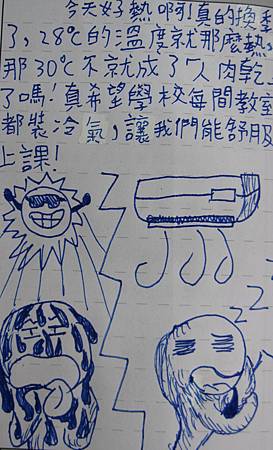 今天好熱啊!真的換季
了,28℃的溫度就那麼熱
那30℃不就成了人肉乾
了嗎!真希望學校每間教室
都裝冷氣,讓我們能舒服
上課!
Z Z Z